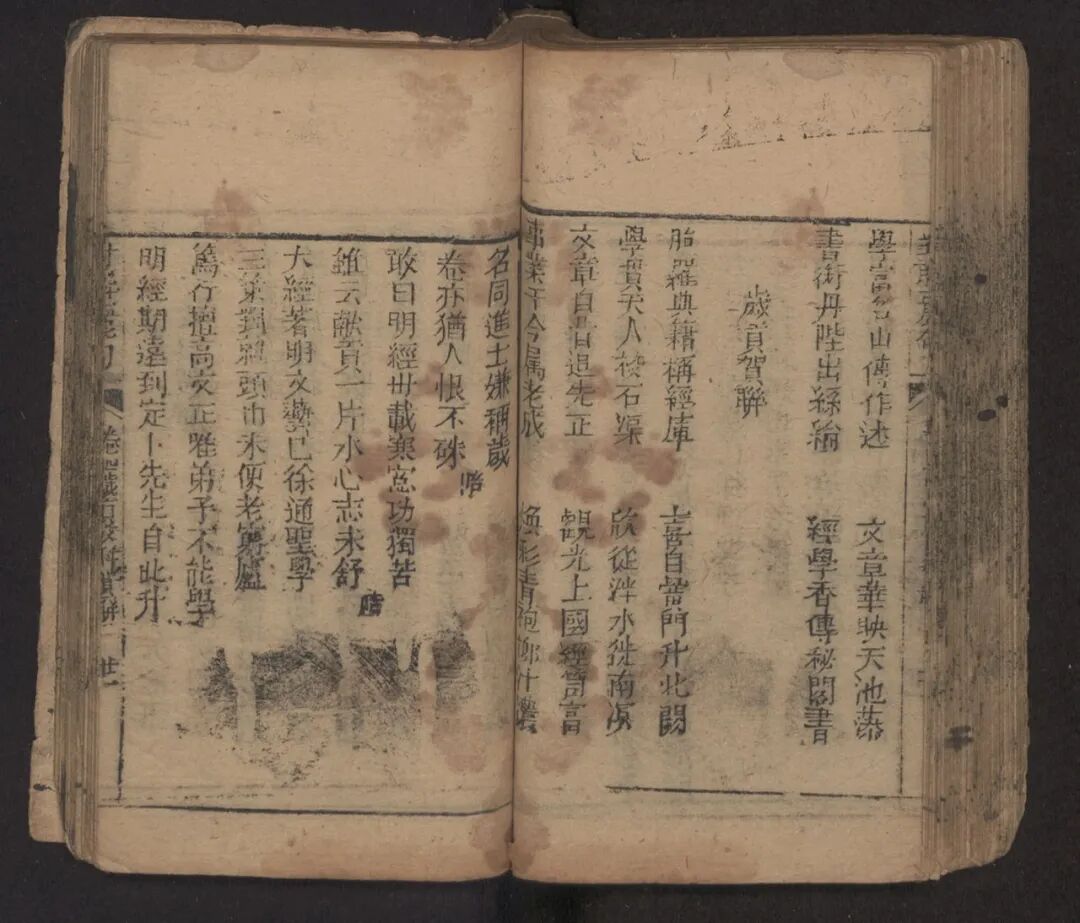 學富名山傳作述 文章華映天池藻
書衔丹陛出絲綸 經學香傳秘閣書
歲貢賀聯
胎羅典籍稱經庫 喜自黌門升北闕
學貫天人校石渠 欣從泮水徙南溟
文章自昔追先正 觀光上國經笥富
事業于今属老成 煥彩青袍
名同進士嫌稱歲
卷亦猶人恨不硃
敢曰明經卅載寒窓功獨苦
雖云歲貢一片水心志未舒
大經著明文勢已徐通聖學
三策對 頭巾未便老窮廬
篤行擅高文正唯弟子不能學
明經期遠到定卜先生自此升
卷 歲貢 賀聯 卄